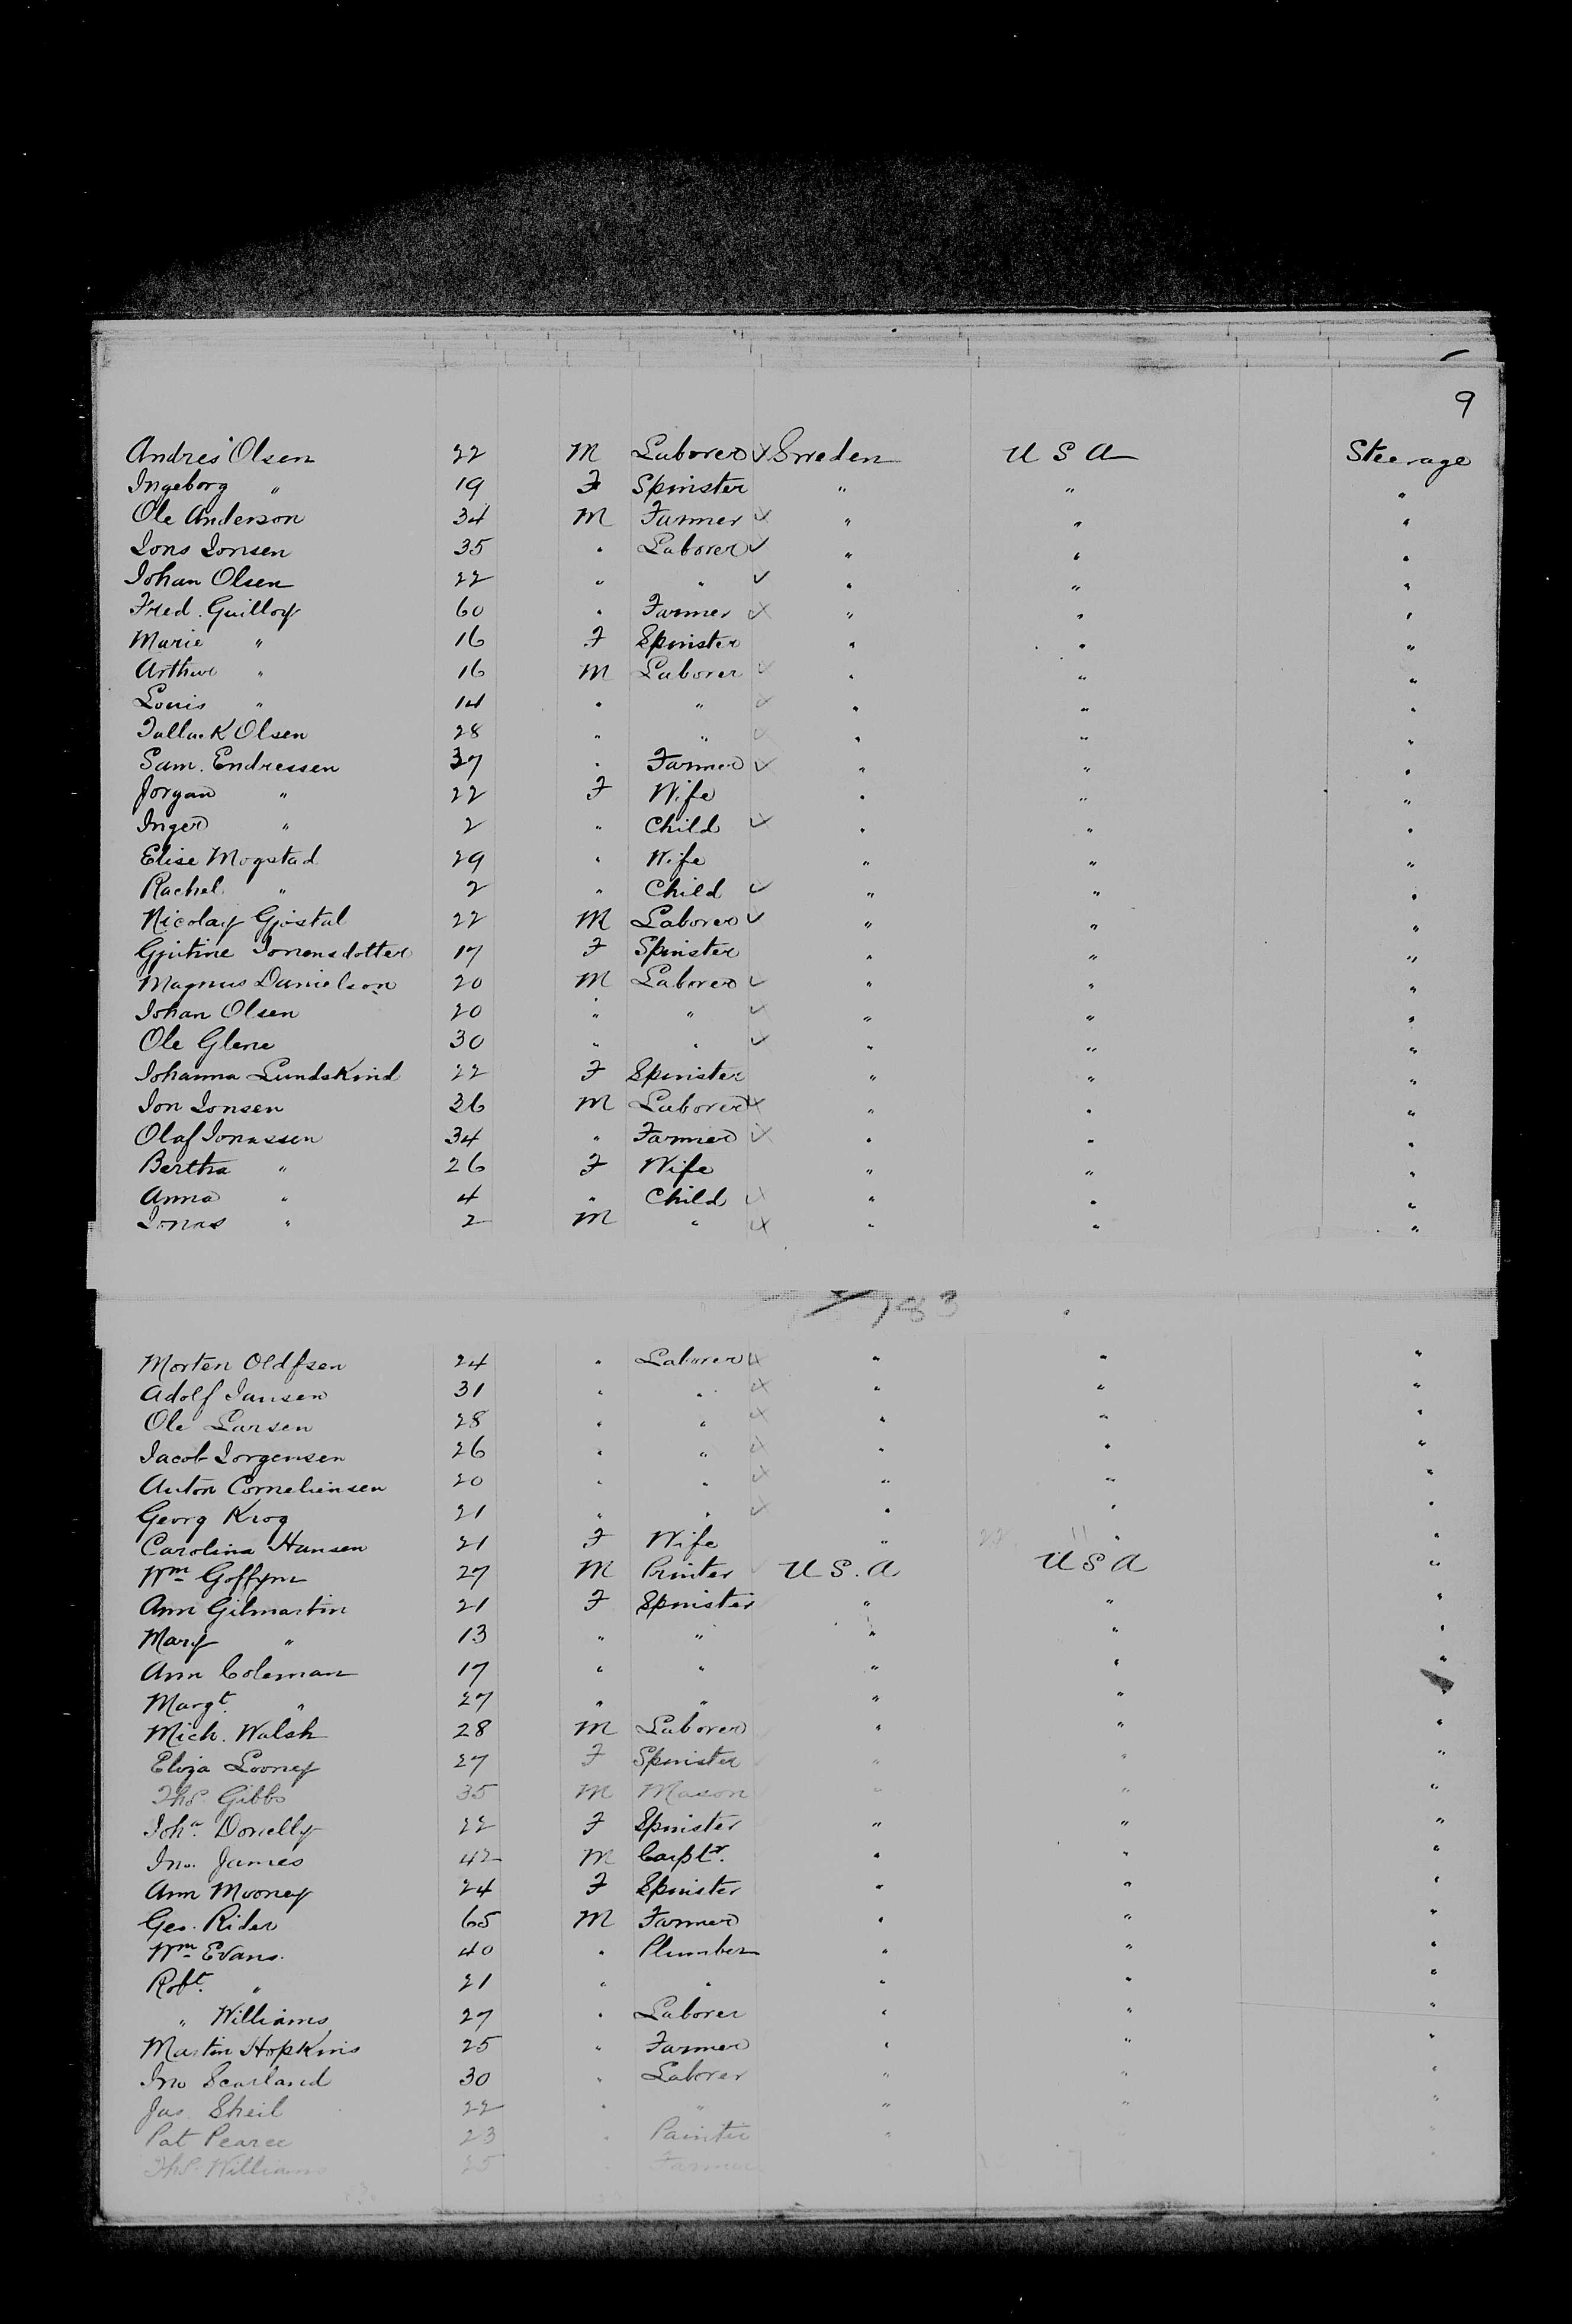 9
Andres Olsen 22 M Laborer Sweden U S A Steerage
Ingeborg " 19 F Spinster " " "
Ole Anderson 34 M Farmer " " "
Ions Ionsen 35 " Laborer " " "
Iohan Olsen 22 " " " " "
Fred. Guilloy 60 " Farmer " " "
Marie " 16 F Spinster " " "
Arthur " 16 M Laborer " " "
Louis " 14 " " " " "
Tallack Olsen 28 " " " " "
Sam. Endressen 37 " Farmer " " "
Jorgan " 22 F Wife " " "
Inger " 2 " Child " " "
Elise Mogstad 29 " Wife " " "
Rachel " 2 " Child " " "
Nicolay Gjostal 22 M Laborer " " "
Gjutine Ionensdotter 17 F Spinster " " "
Magnus Danielson 20 M Laborer " " "
Iohan Olsen 20 " " " " "
Ole Glene 30 " " " " "
Iohanna Lundskind 22 F Spinster " " "
Ion Ionsen 26 M Laborer " " "
Olaf Ionassen 34 " Farmer " " "
Bertha " 26 F Wife " " "
Anna " 4 " Child " " "
Ionas " 2 M " " " "
783
Morten Oldfsen 24 " Laborer " " "
Adolf Iansen 31 " " " " "
Ole Larsen 28 " " " " "
Iacob Iorgensen 26 " " " " "
Anton Corneliensen 20 " " " " "
Georg Krog 21 " " " " "
Carolina Hansen 21 F Wife " " "
Wm Goffyne 27 M Printer U S. A U S A "
Ann Gilmartin 21 F Spinster " " "
Mary " 13 " " " " "
Ann Coleman 17 " " " " "
Margt. " 27 " " " " "
Mich. Walsh 28 M Laborer " " "
Eliza Looney 27 F Spinster " " "
Thos. Gibbs 35 M Mason " " "
Joha. Donelly 22 F Spinster " " "
Jno. James 42 M Carptr. " " "
Ann Mooney 24 F Spinster " " "
Geo. Rider 65 M Farmer " " "
Wm Evans. 40 " Plumber " " "
Robt. " 21 " " " " "
" Williams 27 " Laborer " " "
Martin Hopkins 25 " Farmer " " "
Jno Scarland 30 " Laborer " " "
Jas. Sheil 22 " " " " "
Pat Pearce 23 " Painter " "
Thos. Williams 25 Farmer